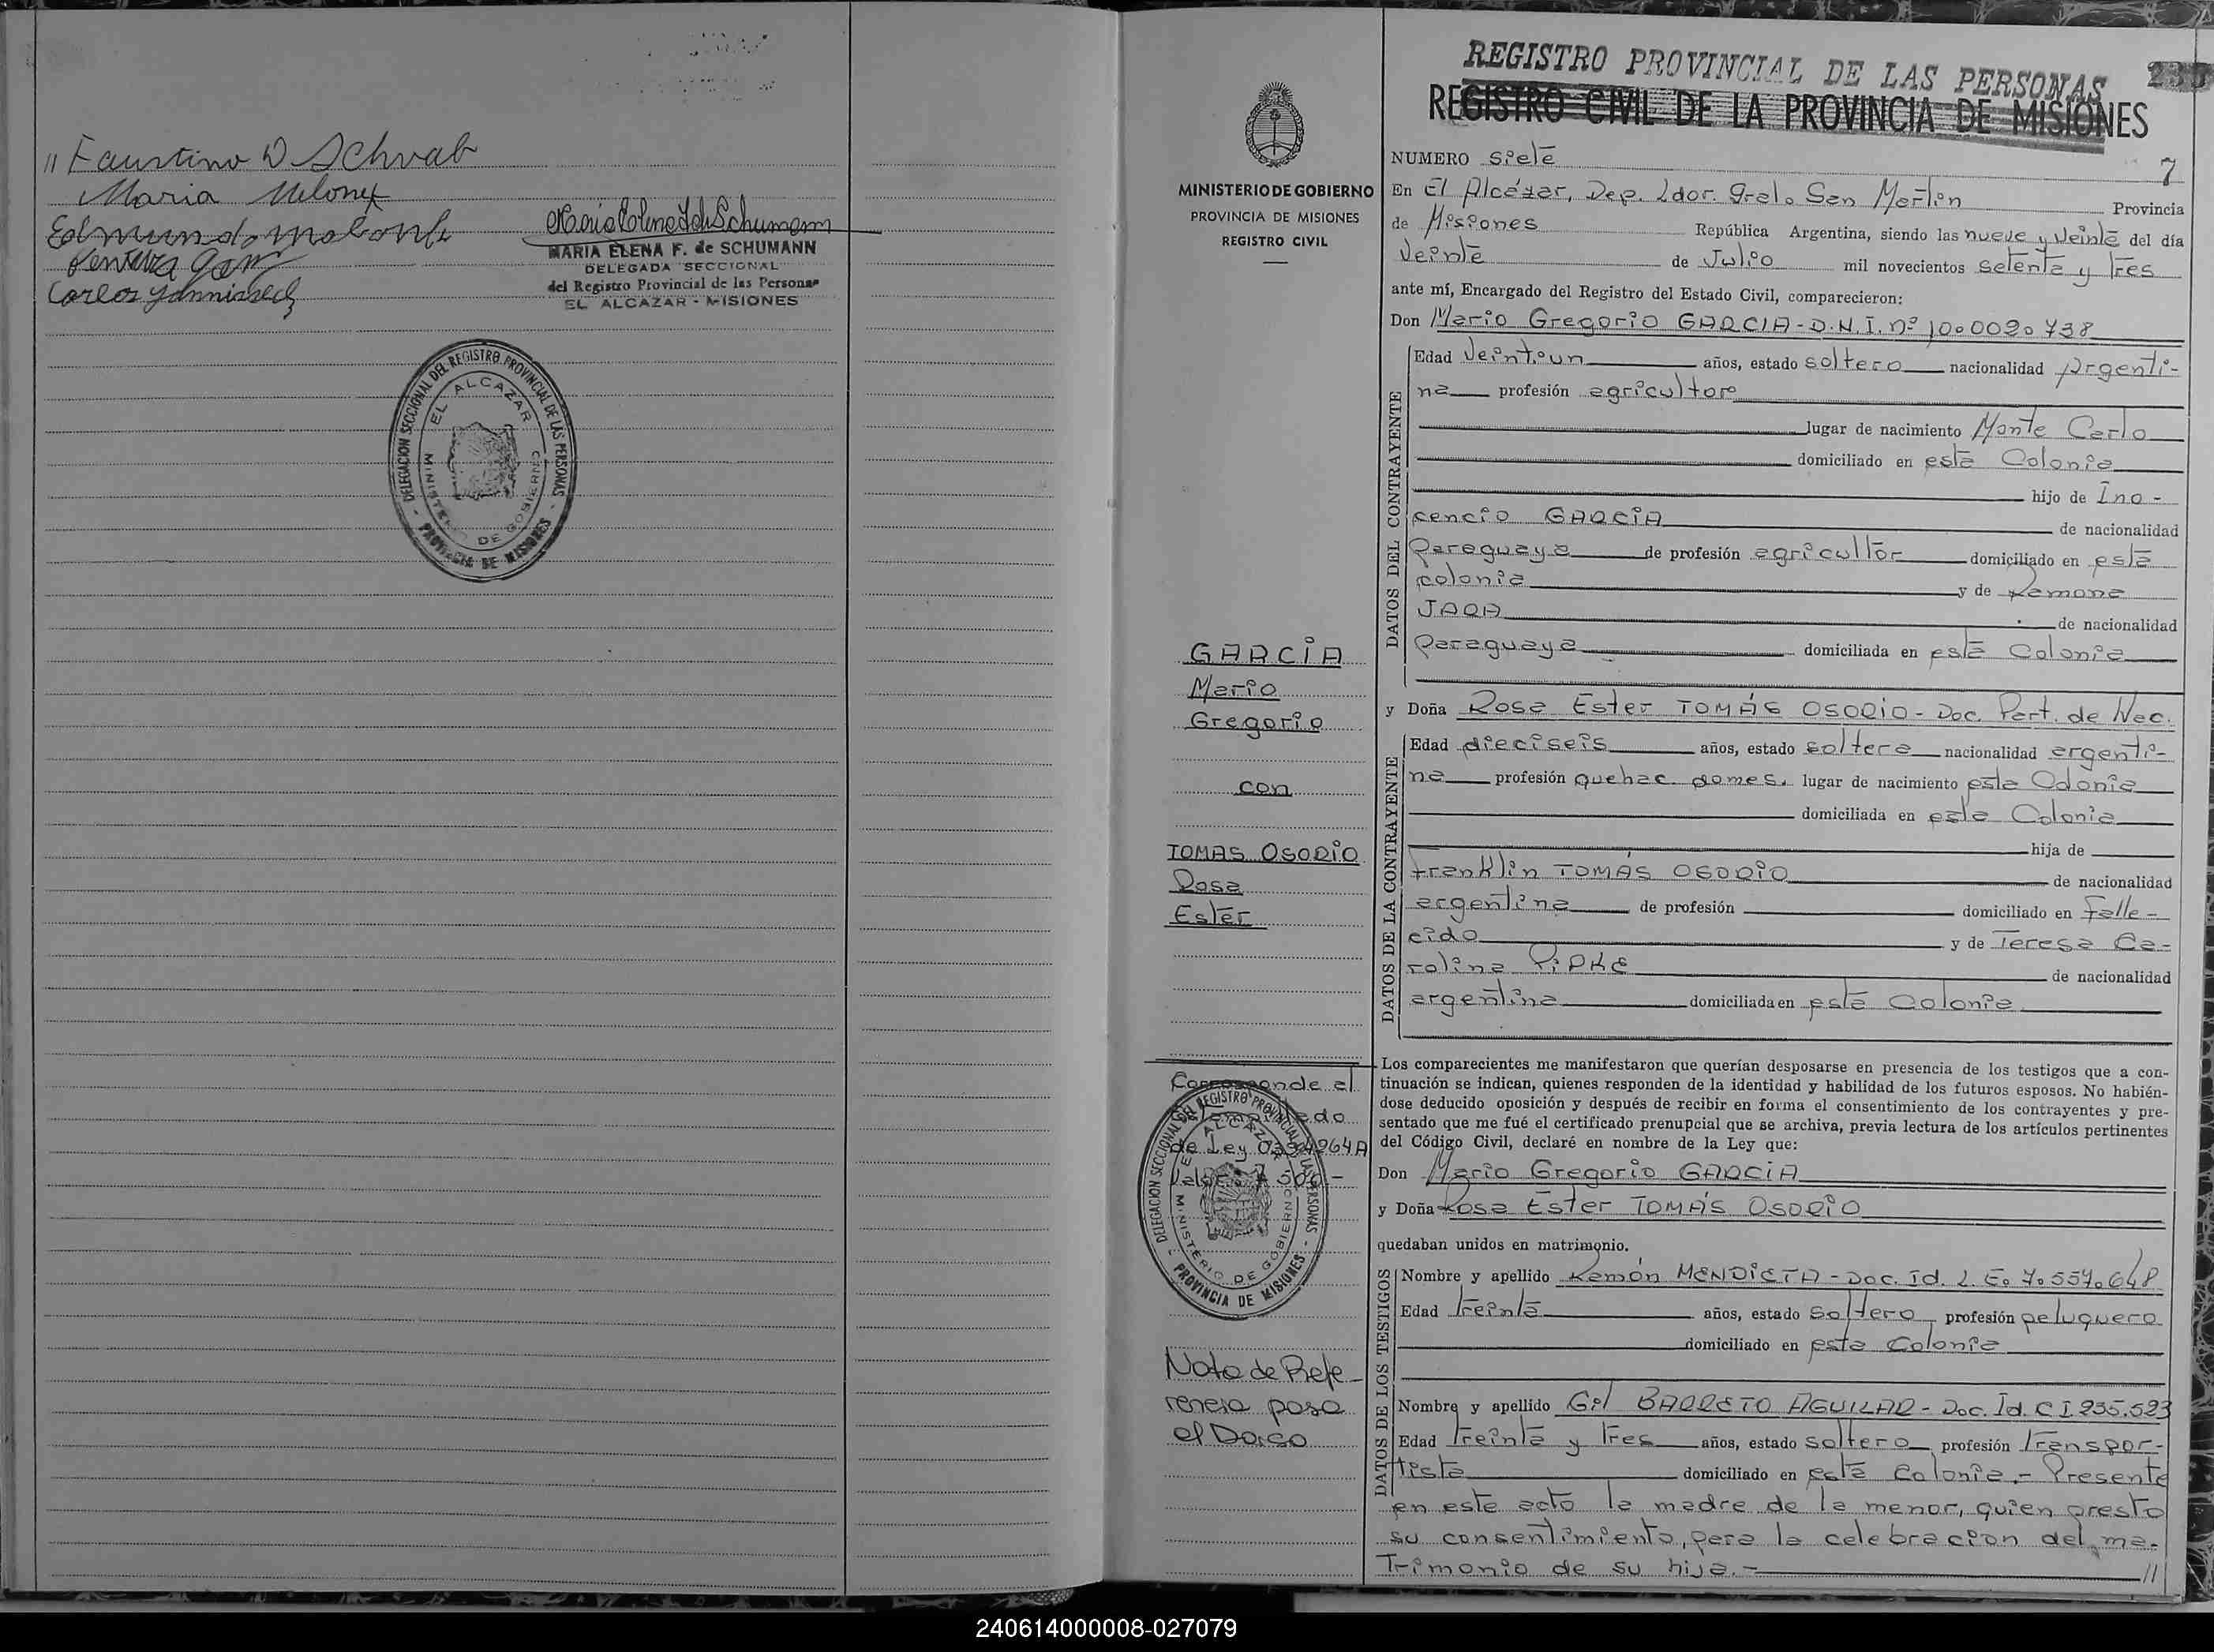 // Faustino D Schvab
Maria Melonek
Edmundo
Carlos
MARIA ELENA F. de SCHUMANN
DELEGADA SECCIONAL
del Registro Provincial de las Personas
EL ALCAZAR - MISIONES
DELEGACION SECCIONAL DEL REGISTRO PROVINCIAL DE LAS PERSONAS - PROVINCIA DE MISIONES -
EL ALCAZAR
MINISTERIO DE GOBIERNO
MINISTERIO DE GOBIERNO
PROVINCIA DE MISIONES
REGISTRO CIVIL
GARCÍA
Mario
Gregorio
con
TOMAS OSORIO
Rosa
Ester
Corresponde al
de Ley
DELEGACION SECCIONAL DEL REGISTRO PROVINCIAL DE LAS PERSONAS - PROVINCIA DE MISIONES -
EL ALCAZAR
MINISTERIO DE GOBIERNO
Nota de Refe-
rencia pasa
al Dorso
REGISTRO PROVINCIAL DE LAS PERSONAS
REGISTRO CIVIL DE LA PROVINCIA DE MISIONES
NUMERO siete 7
En El Alcázar, Dep. Ldor. Gral. San Martín Provincia
de Misiones República Argentina, siendo las nueve y veinte del día
Veinte de Julio mil novecientos setenta y tres
ante mí, Encargado del Registro del Estado Civil, comparecieron:
Don Mario Gregorio GARCIA - D.N.I. nº 10.002.738
DATOS DEL CONTRAYENTE
Edad Veintiun años, estado soltero nacionalidad argenti-
na profesión agricultor
lugar de nacimiento Monte Carlo
domiciliado en esta Colonia
hijo de Ino-
cencio GARCÍA de nacionalidad
Paraguaya de profesión agricultor domiciliado en esta
colonia y de Ramona
JARA de nacionalidad
Paraguaya domiciliada en esta Colonia
y Doña Rosa Ester TOMÁS OSORIO - Doc. Part. de Nac.
DATOS DE LA CONTRAYENTE
Edad dieciseis años, estado soltera nacionalidad argenti-
na profesión quehac. domes. lugar de nacimiento esta Colonia
domiciliada en esta Colonia
hija de
Franklin TOMÁS OSORIO de nacionalidad
argentina de profesión domiciliado en Falle-
cido y de Teresa Ca-
rolina PIPKE de nacionalidad
argentina domiciliada en esta Colonia
Los comparecientes me manifestaron que querían desposarse en presencia de los testigos que a con-
tinuación se indican, quienes responden de la identidad y habilidad de los futuros esposos. No habién-
dose deducido oposición y después de recibir en forma el consentimiento de los contrayentes y pre-
sentado que me fué el certificado prenupcial que se archiva, previa lectura de los artículos pertinentes
del Código Civil, declaré en nombre de la Ley que:
Don Mario Gregorio GARCÍA
y Doña Rosa Ester TOMÁS OSORIO
quedaban unidos en matrimonio.
DATOS DE LOS TESTIGOS
Nombre y apellido Ramón MENDIETA - Doc. Id. L. E. 7.559.648
Edad treinta años, estado soltero profesión peluquero
domiciliado en esta Colonia
Nombre y apellido Gil BARRETO AGUILAR - Doc. Id. C I 235.523
Edad treinta y tres años, estado soltero profesión transpor-
tista domiciliado en esta Colonia.- Presente
en este acto la madre de la menor, quien presto
su consentimiento, para la celebracion del ma-
trimonio de su hija.- //
240614000008-027079